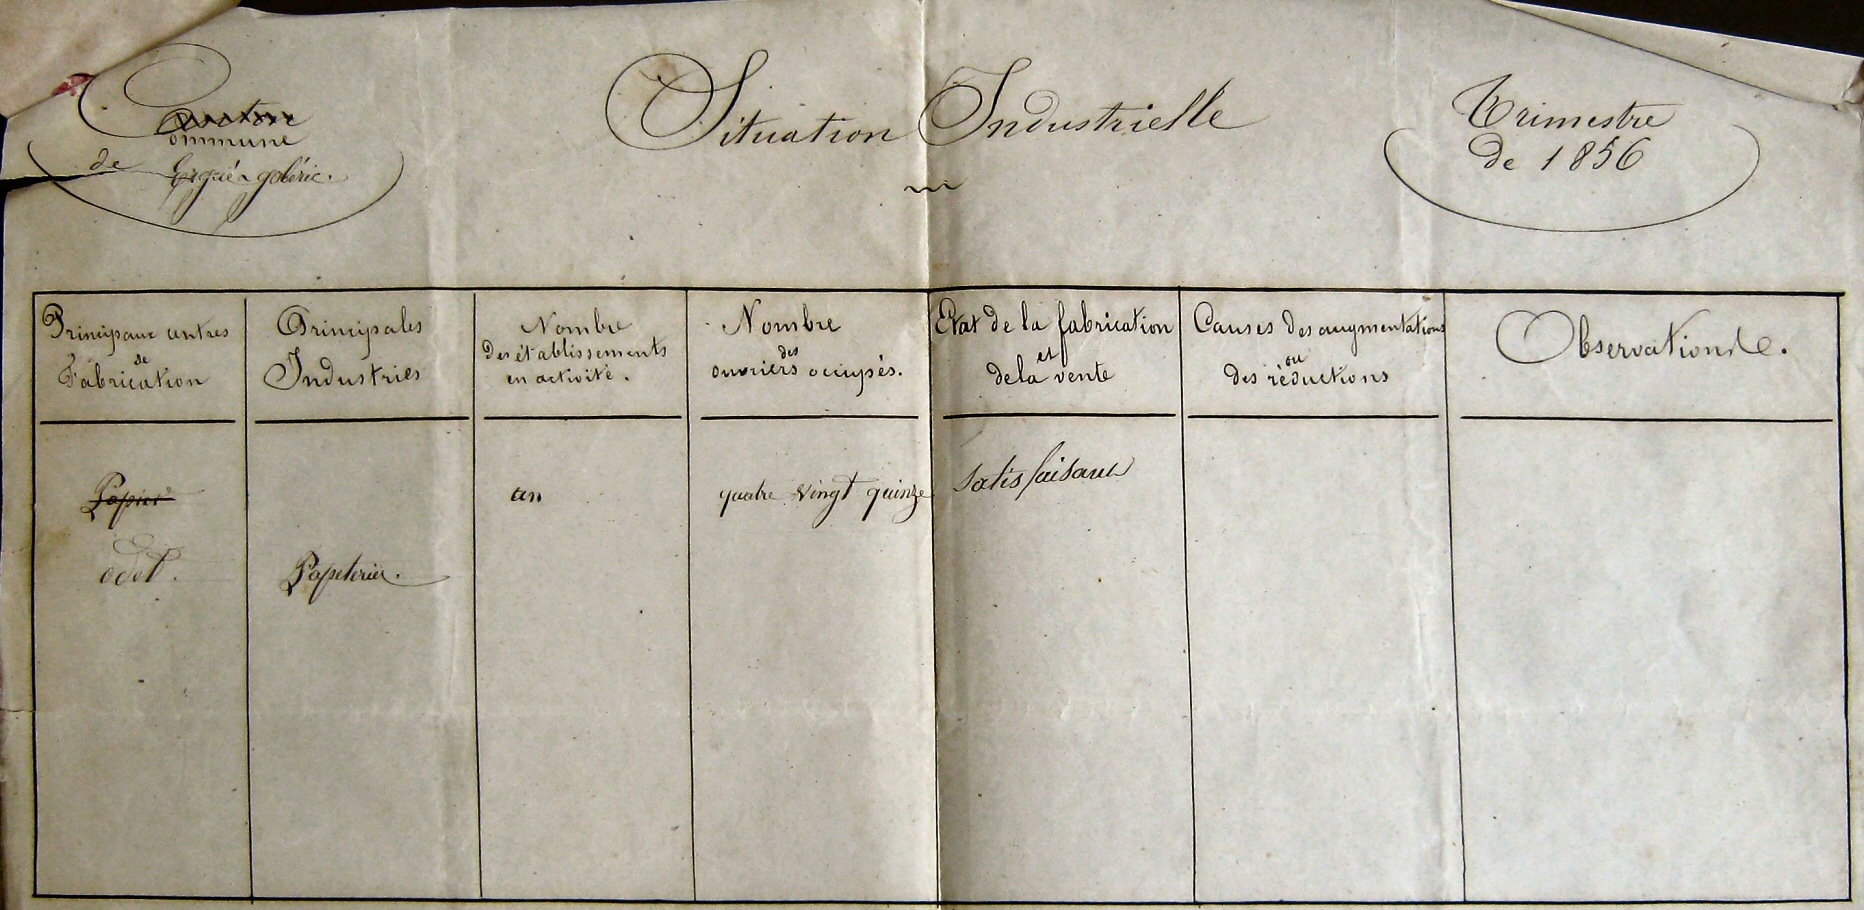 Commune
de Ergué-gabéric.
Situation Industrielle
Trimestre
de 1856
Principaux centres
de
Fabrication
Principales
Industries
Nombre
des établissements
en activité.
Nombre
des
ouvriers occupés.
Etat de la fabrication
et
de la vente
Causes des augmentations
ou
des réductions
Observations.
Papier
un
quatre vingt quinze
Satisfaisant
odet.
Papeterie.